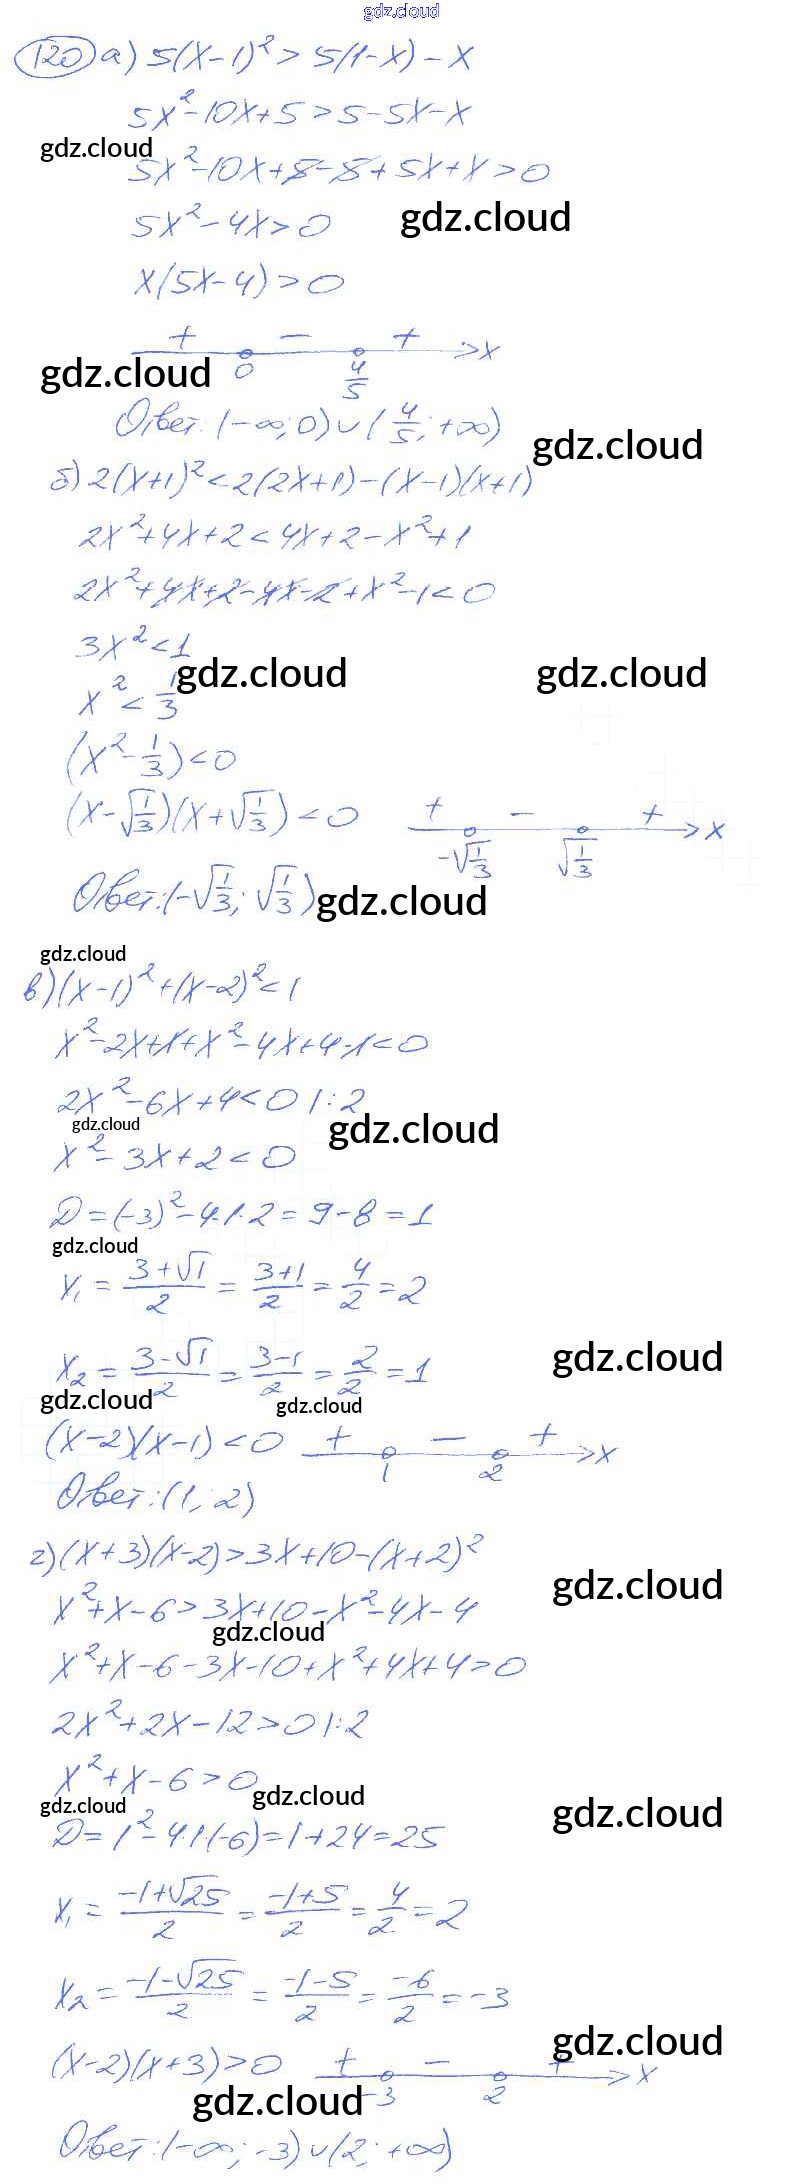 gdz.cloud
120 а) 5(x-1)² > 5(1-x) - x
5x² - 10x + 5 > 5 - 5x - x
gdz.cloud
5x² - 10x + 5 - 5 + 5x + x > 0
5x² - 4x > 0
gdz.cloud
x(5x-4) > 0
+ - + x
gdz.cloud
0 4/5
Ответ: (-∞; 0) ∪ (4/5; +∞)
gdz.cloud
б) 2(x+1)² < 2(2x+1) - (x-1)(x+1)
2x² + 4x + 2 < 4x + 2 - x² + 1
2x² + 4x + 2 - 4x - 2 + x² - 1 < 0
3x² < 1
gdz.cloud gdz.cloud
x² < 1/3
(x² - 1/3) < 0
(x - √1/3)(x + √1/3) < 0 + - + x
-√1/3 √1/3
Ответ: (-√1/3; √1/3)
gdz.cloud
gdz.cloud
в) (x-1)² + (x-2)² < 1
x² - 2x + 1 + x² - 4x + 4 - 1 < 0
2x² - 6x + 4 < 0 |:2
gdz.cloud gdz.cloud
x² - 3x + 2 < 0
D = (-3)² - 4·1·2 = 9 - 8 = 1
gdz.cloud
x₁ = (3+√1)/2 = (3+1)/2 = 4/2 = 2
x₂ = (3-√1)/2 = (3-1)/2 = 2/2 = 1
gdz.cloud
gdz.cloud gdz.cloud
(x-2)(x-1) < 0 + - + x
1 2
Ответ: (1; 2)
г) (x+3)(x-2) > 3x + 10 - (x+2)²
gdz.cloud
x² + x - 6 > 3x + 10 - x² - 4x - 4
gdz.cloud
x² + x - 6 - 3x - 10 + x² + 4x + 4 > 0
2x² + 2x - 12 > 0 |:2
x² + x - 6 > 0
gdz.cloud gdz.cloud gdz.cloud
D = 1² - 4·1·(-6) = 1 + 24 = 25
x₁ = (-1+√25)/2 = (-1+5)/2 = 4/2 = 2
x₂ = (-1-√25)/2 = (-1-5)/2 = -6/2 = -3
gdz.cloud
(x-2)(x+3) > 0 + - + x
-3 2
gdz.cloud
Ответ: (-∞; -3) ∪ (2; +∞)